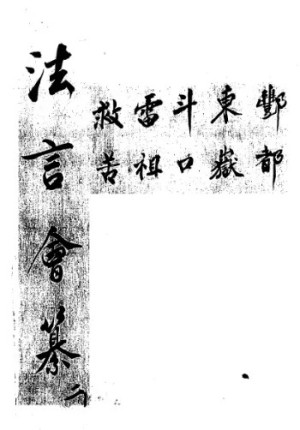 酆都
東嶽
斗口
雷祖
救苦
法言會纂
二